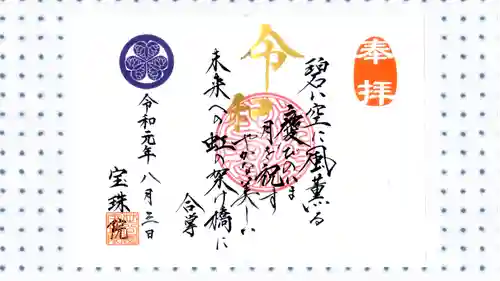 奉拝
碧い空に風薫る
慶びのいま
令和
月を祝す
やかな美しい
未来への虹の架け橋に
合掌
令和元年 八月三日
宝珠院